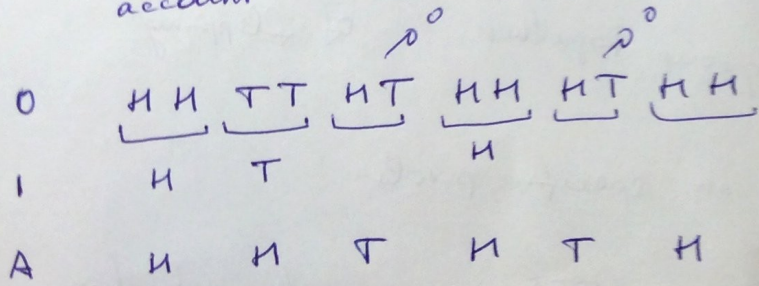 O HH TT HT HH HT HH
I H T H
A H H T H T H